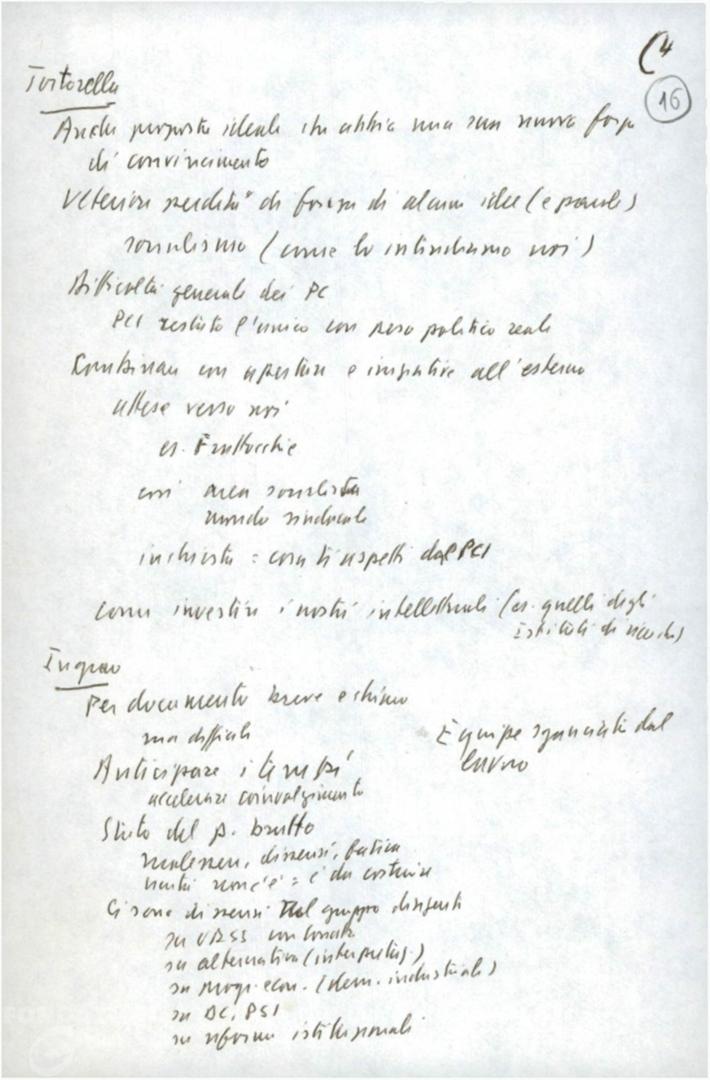 (4
16
Tortorella
Anche proposta ideale che abbia una sua nuova forza
di convincimento
Ulteriore perdita di forza di alcune idee (e parole)
socialismo (come lo intendiamo noi)
Difficoltà generale dei PC
PCI restato l'unico con peso politico reale
Combinare con aperture e iniziative all'esterno
attese verso noi
es. Frattocchie
così area socialista
mondo sindacale
inchiesta = cosa ti aspetti dal PCI
come investire i nostri intellettuali (es. quelli degli
Istituti di ricerche)
Ingrao
Per documento breve e chiaro
ma difficile
Equipe sganciate dal
lavoro
Anticipare i tempi
accelerare coinvolgimento
Stato del p. brutto
malessere, dissensi, fatica
unità non c'è = è da costruire
Ci sono dissensi nel gruppo dirigente
su URSS con Cossutta
su alternativa (interpretaz.)
su progr. econ. (dem. industriale)
su DC, PSI
su riforme istituzionali